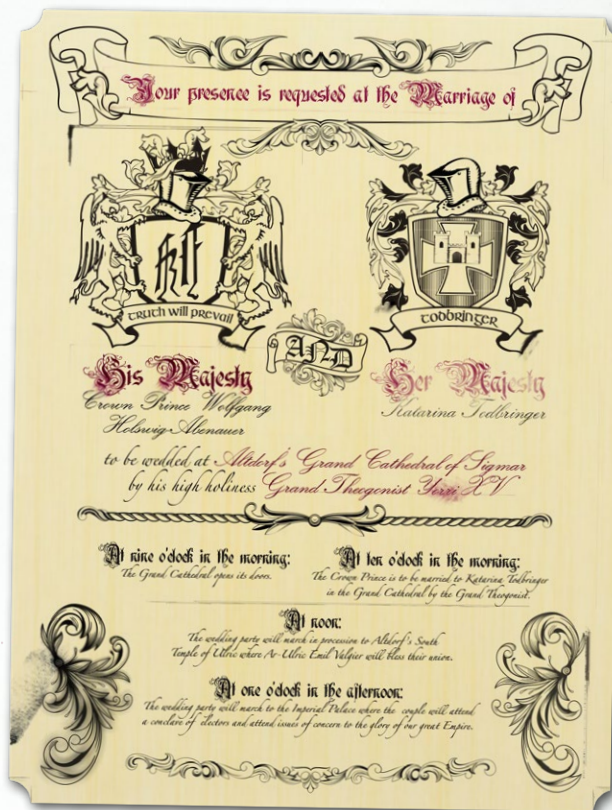 Your presence is requested at the Marriage of
truth will prevail
todbringer
AND
His Majesty
Crown Prince Wolfgang
Holswig-Abenauer
Her Majesty
Katarina Todbringer
to be wedded at Altdorf's Grand Cathedral of Sigmar
by his high holiness Grand Theogonist Yorri XV
At nine o'clock in the morning:
The Grand Cathedral opens its doors.
At ten o'clock in the morning:
The Crown Prince is to be married to Katarina Todbringer
in the Grand Cathedral by the Grand Theogonist.
At noon:
The wedding party will march in procession to Altdorf's South
Temple of Ulric where Ar-Ulric Emil Valgier will bless their union.
At one o'clock in the afternoon:
The wedding party will march to the Imperial Palace where the couple will attend
a conclave of electors and attend issues of concern to the glory of our great Empire.